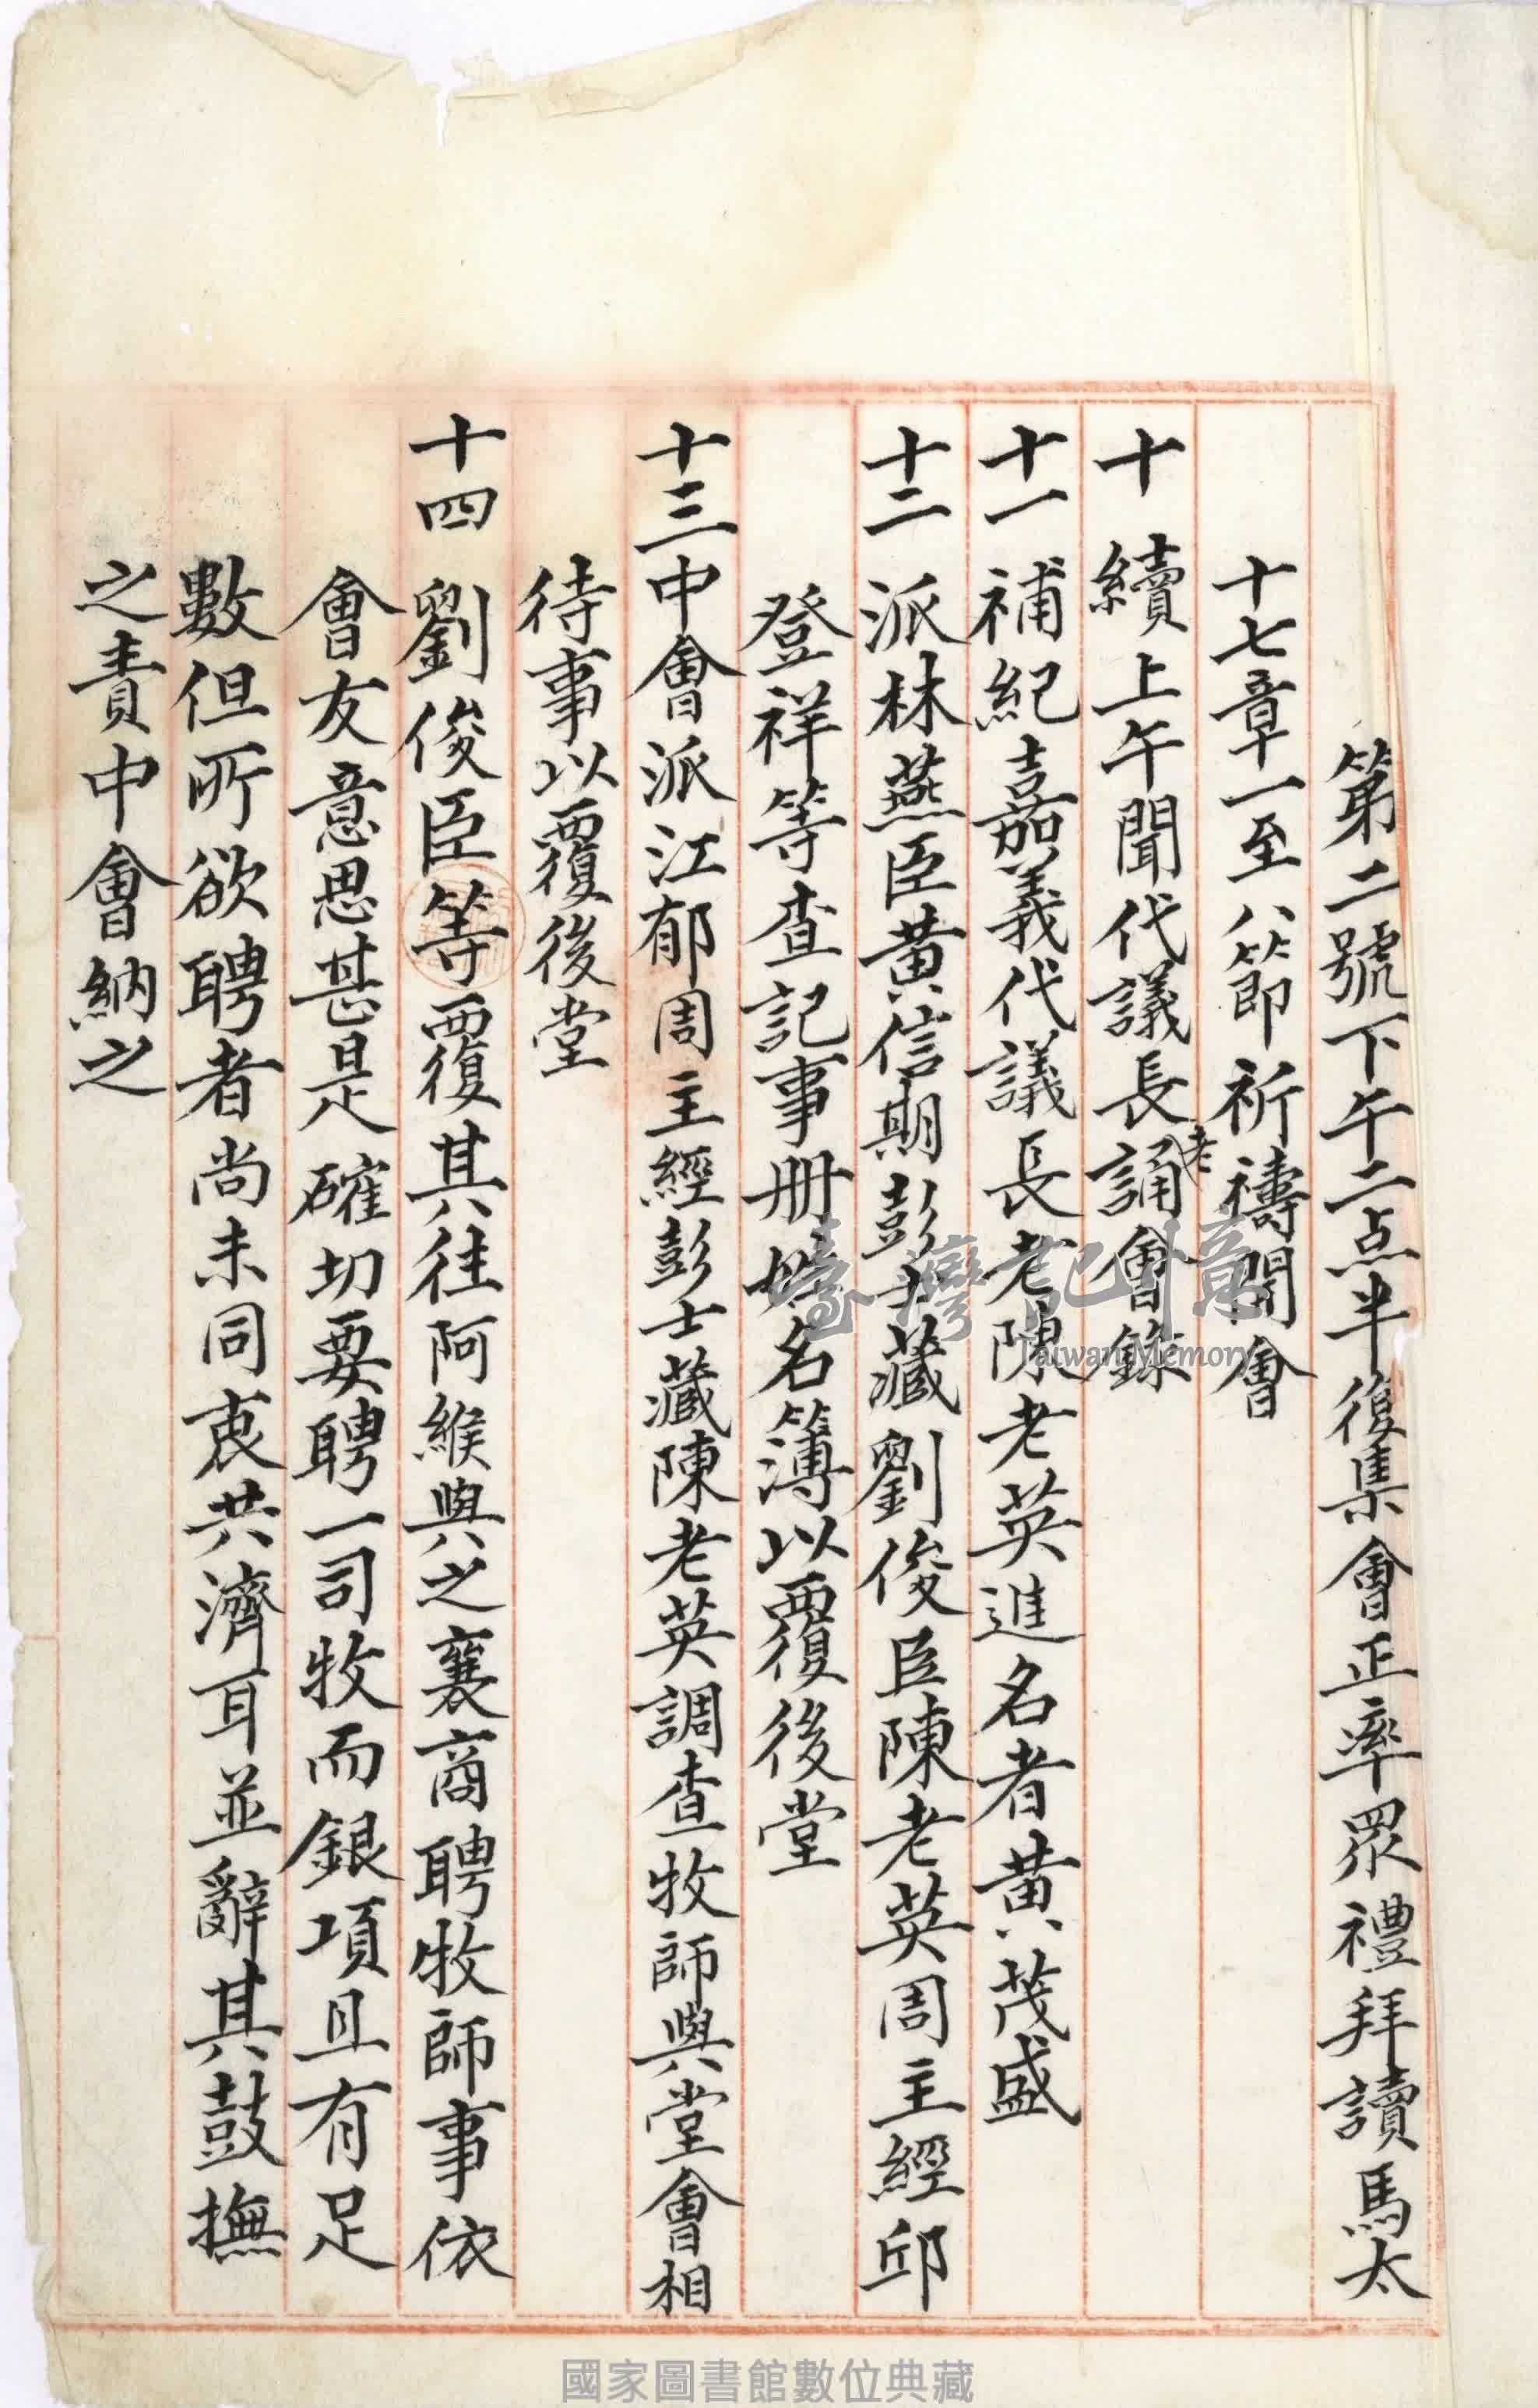 第二號下午二点半復集會正率眾禮拜讀馬太
十七章一至八節祈禱開會
十 續上午聞代議長老誦會錄
十一 補紀嘉義代議長老陳老英進名者黄茂盛
十二 派林燕臣黄信期彭士藏劉俊臣陳老英周主經邱
登祥等查記事册姓名簿以覆後堂
十三 中會派江郁周主經彭士藏陳老英調查牧師與堂會相
待事以覆後堂
十四 劉俊臣等覆其往阿緱與之襄商聘牧師事依
會友意思甚是確切要聘一司牧而銀項且有足
數但所欲聘者尚未同衷共濟耳並辭其鼓撫
之責中會納之
臺灣記憶
Taiwan Memory
國家圖書館數位典藏